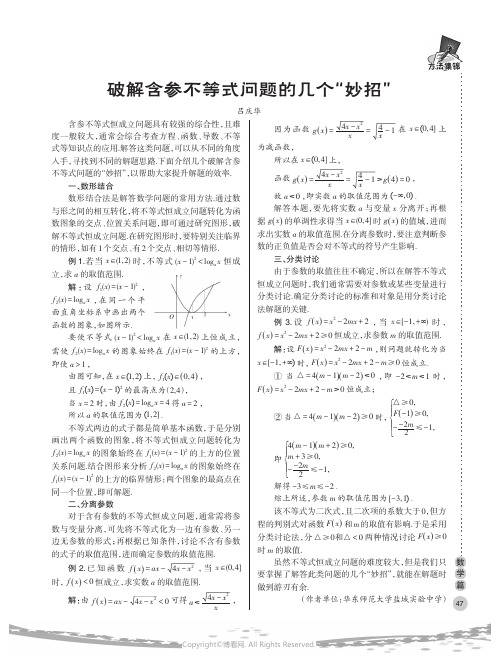 方法集锦
破解含参不等式问题的几个“妙招”
吕庆华
含参不等式恒成立问题具有较强的综合性,且难
度一般较大,通常会综合考查方程、函数、导数、不等
式等知识点的应用.解答这类问题,可以从不同的角度
入手,寻找到不同的解题思路.下面介绍几个破解含参
不等式问题的“妙招”,以帮助大家提升解题的效率.
一、数形结合
数形结合法是解答数学问题的常用方法.通过数
与形之间的相互转化,将不等式恒成立问题转化为函
数图象的交点、位置关系问题,即可通过研究图形,破
解不等式恒成立问题.在研究图形时,要特别关注临界
的情形,如有1个交点、有2个交点、相切等情形.
例1.若当 x∈(1,2) 时,不等式 (x-1)²<logₐx 恒成
立,求 a 的取值范围.
解:设 f₁(x)=(x-1)²,
f₂(x)=logₐx,在同一个平
面直角坐标系中画出两个
函数的图象,如图所示.
要使不等式 (x-1)²<logₐx 在 x∈(1,2) 上恒成立,
需使 f₂(x)=logₐx 的图象始终在 f₁(x)=(x-1)² 的上方,
即使 a>1,
由图可知,在 x∈(1,2) 上,f₁(x)∈(0,4),
且 f₁(x)=(x-1)² 的最高点为(2,4),
当 x=2 时,由 f₂(x)=logₐx=4 得 a=2,
所以 a 的取值范围为 (1,2].
不等式两边的式子都是简单基本函数,于是分别
画出两个函数的图象,将不等式恒成立问题转化为
f₂(x)=logₐx 的图象始终在 f₁(x)=(x-1)² 的上方的位置
关系问题.结合图形来分析 f₂(x)=logₐx 的图象始终在
f₁(x)=(x-1)² 的上方的临界情形:两个图象的最高点在
同一个位置,即可解题.
二、分离参数
对于含有参数的不等式恒成立问题,通常需将参
数与变量分离,可先将不等式化为一边有参数、另一
边无参数的形式;再根据已知条件,讨论不含有参数
的式子的取值范围,进而确定参数的取值范围.
例2.已知函数 f(x)=ax-√(4x-x²),当 x∈(0,4]
时,f(x)<0 恒成立,求实数 a 的取值范围.
解:由 f(x)=ax-√(4x-x²)<0 可得 a<√(4x-x²)/x,
因为函数 g(x)=√(4x-x²)/x=√(4/x-1) 在 x∈(0,4] 上
为减函数,
所以在 x∈(0,4] 上,
函数 g(x)=√(4x-x²)/x=√(4/x-1)≥g(4)=0,
故 a<0,即实数 a 的取值范围为 (-∞,0).
解答本题,要先将实数 a 与变量 x 分离开;再根
据 g(x) 的单调性求得当 x∈(0,4] 时 g(x) 的值域,进而
求出实数 a 的取值范围.在分离参数时,要注意判断参
数的正负值是否会对不等式的符号产生影响.
三、分类讨论
由于参数的取值往往不确定,所以在解答不等式
恒成立问题时,我们通常需要对参数或某些变量进行
分类讨论.确定分类讨论的标准和对象是用分类讨论
法解题的关键.
例3.设 f(x)=x²-2mx+2,当 x∈[-1,+∞) 时,
f(x)=x²-2mx+2≥0 恒成立,求参数 m 的取值范围.
解:设 F(x)=x²-2mx+2-m,则问题就转化为当
x∈[-1,+∞) 时,F(x)=x²-2mx+2-m≥0 恒成立.
①当 △=4(m-1)(m-2)<0,即 -2<m<1 时,
F(x)=x²-2mx+2-m>0 恒成立;
②当 △=4(m-1)(m-2)≥0 时,{△≥0, F(-1)≥0, -(-2m)/2≤-1,
即 {4(m-1)(m+2)≥0, m+3≥0, -(-2m)/2≤-1,
解得 -3≤m≤-2.
综上所述,参数 m 的取值范围为 [-3,1).
该不等式为二次式,且二次项的系数大于0,但方
程的判别式对函数 F(x) 和 m 的取值有影响.于是采用
分类讨论法,分 △≥0和△<0 两种情况讨论 F(x)≥0
时 m 的取值.
虽然不等式恒成立问题的难度较大,但是我们只
要掌握了解答此类问题的几个“妙招”,就能在解题时
做到游刃有余.
(作者单位:华东师范大学盐城实验中学)
数学篇
47
Copyright©博看网. All Rights Reserved.